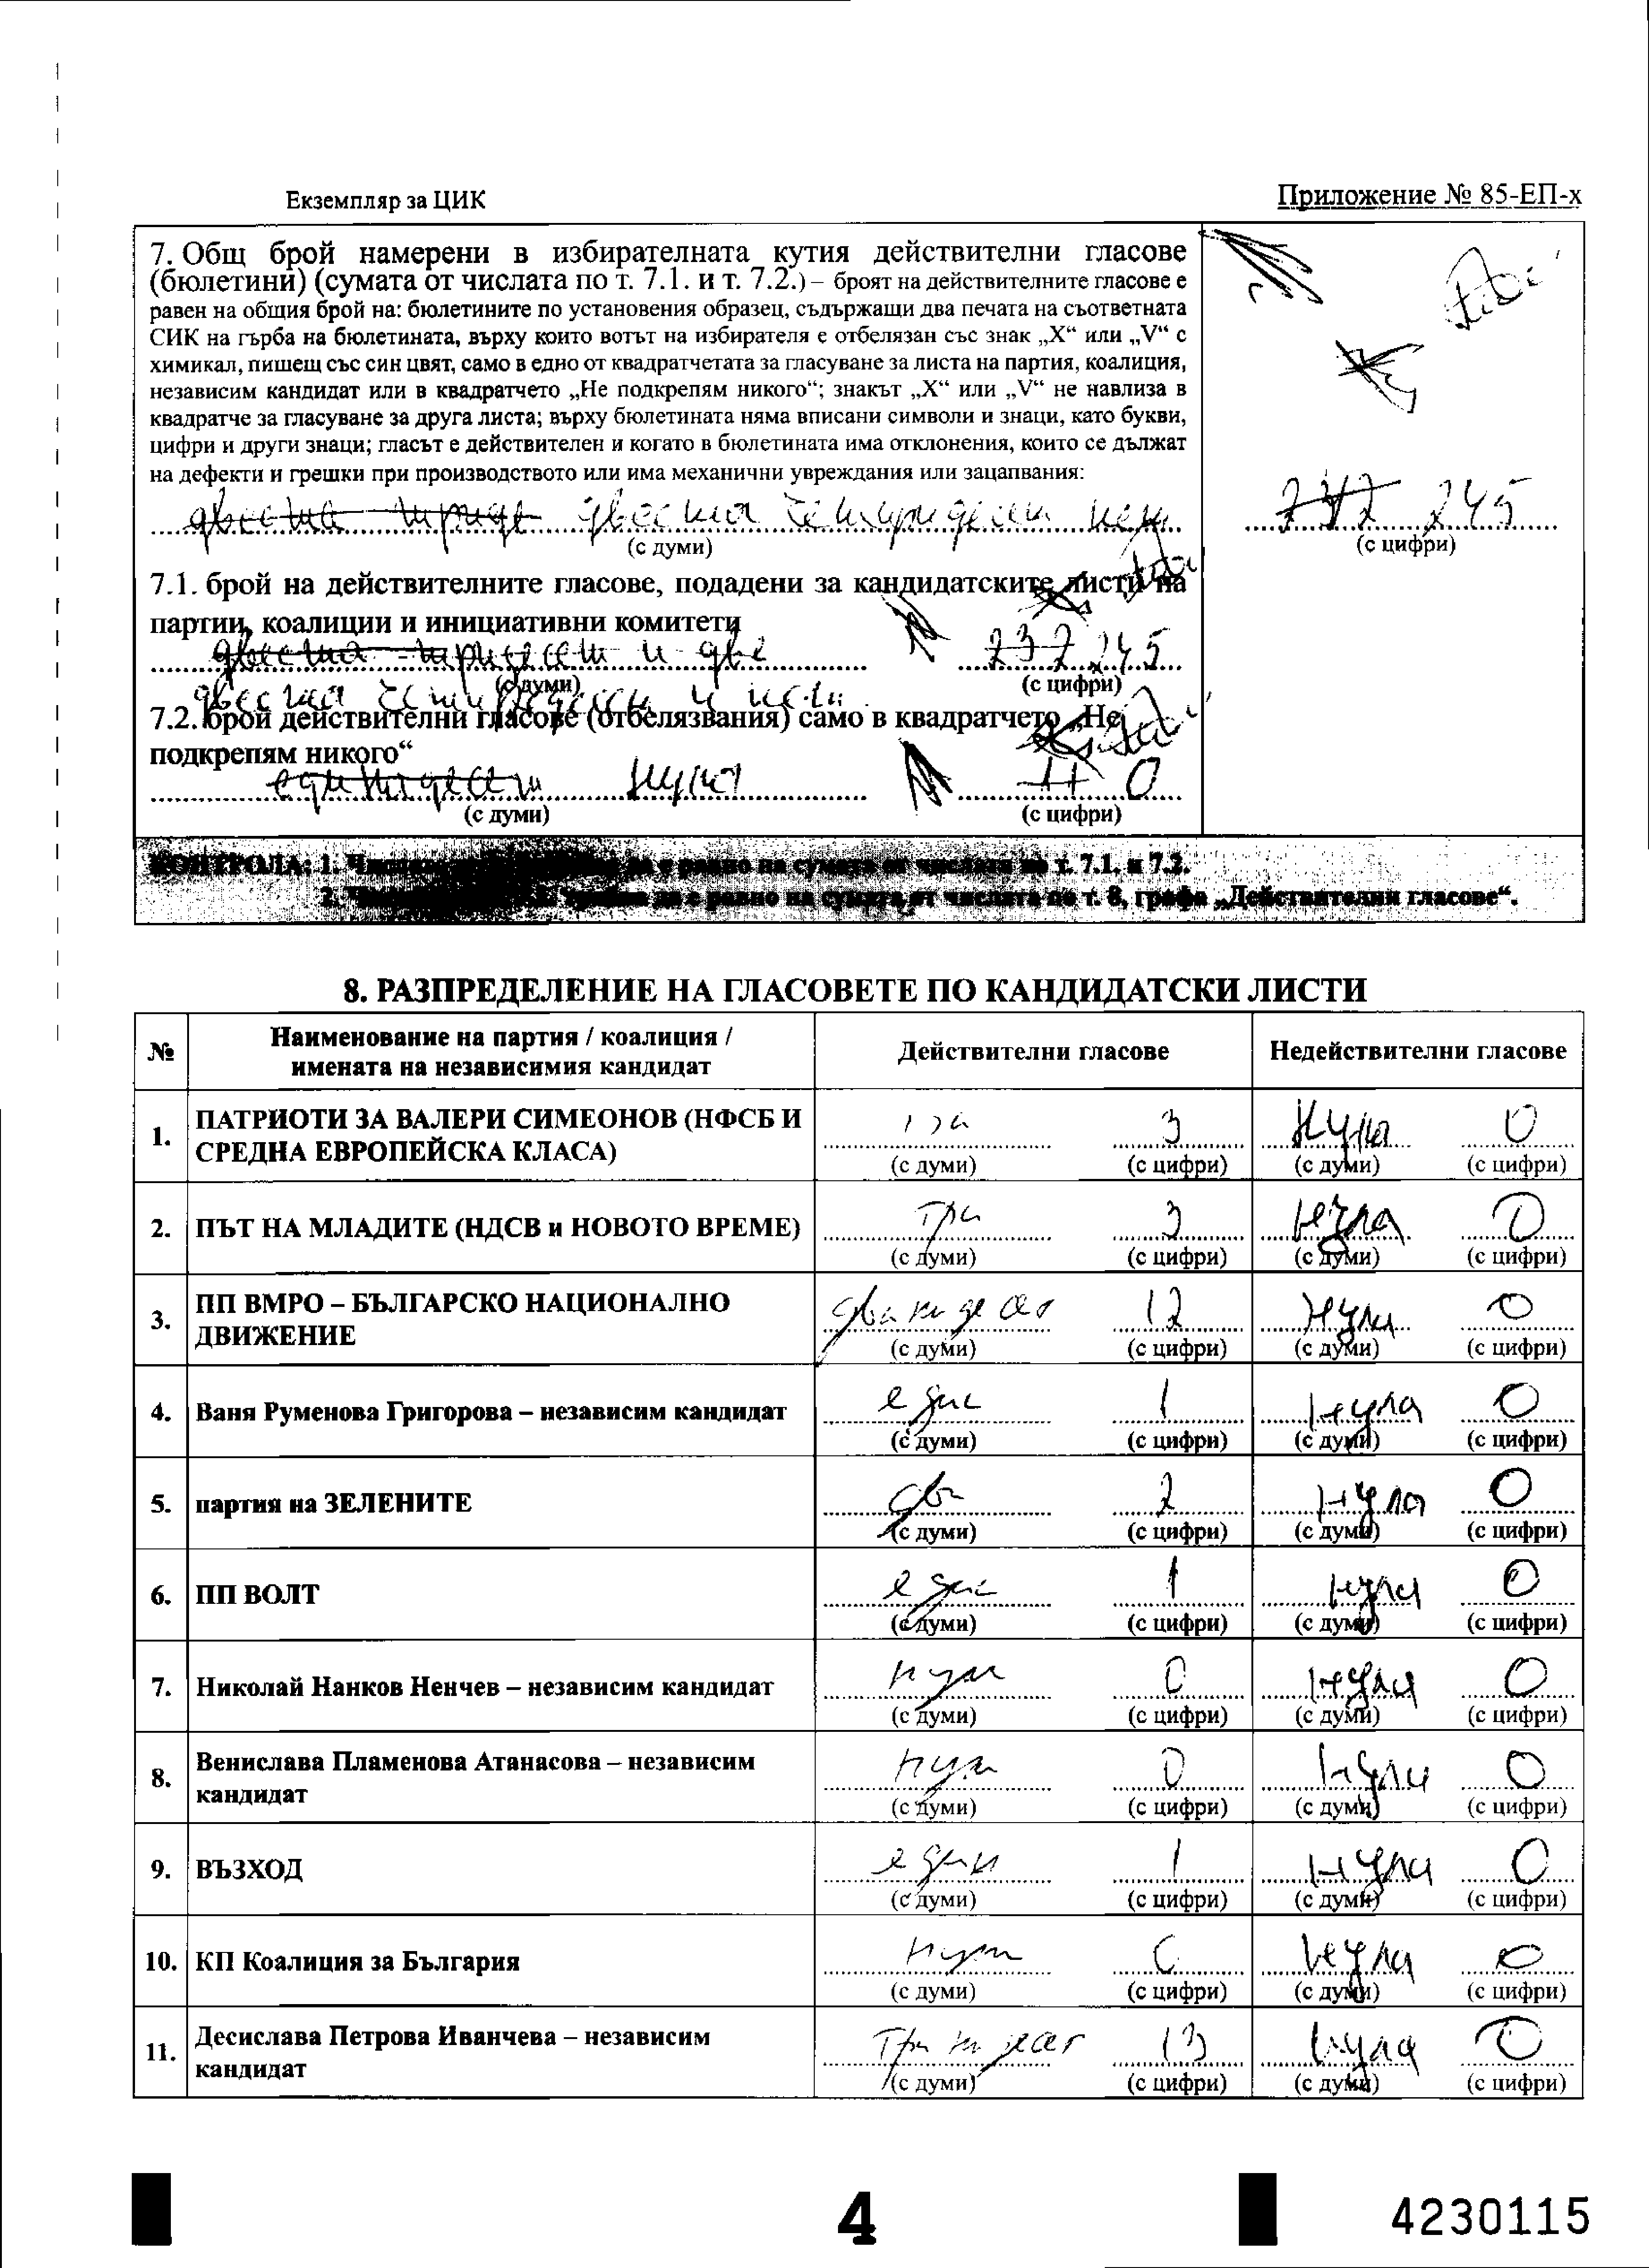 Екземпляр за ЦИК
Приложение № 85-ЕП-х
7. Общ брой намерени в избирателната кутия действителни гласове
(бюлетини) (сумата от числата по т. 7.1. и т. 7.2.) – броят на действителните гласове е
равен на общия брой на: бюлетините по установения образец, съдържащи два печата на съответната
СИК на гърба на бюлетината, върху които вотът на избирателя е отбелязан със знак „X“ или „V“ с
химикал, пишещ със син цвят, само в едно от квадратчетата за гласуване за листа на партия, коалиция,
независим кандидат или в квадратчето „Не подкрепям никого“; знакът „X“ или „V“ не навлиза в
квадратче за гласуване за друга листа; върху бюлетината няма вписани символи и знаци, като букви,
цифри и други знаци; гласът е действителен и когато в бюлетината има отклонения, които се дължат
на дефекти и грешки при производството или има механични увреждания или зацапвания:
двеста двеста четиридесет пет 245
(с думи) (с цифри)
7.1. брой на действителните гласове, подадени за кандидатските листи на
партии, коалиции и инициативни комитети
двеста тридесет и две 232 245
(с думи) (с цифри)
двеста четиридесет и пет
7.2. брой действителни гласове (отбелязвания) само в квадратчето „Не
подкрепям никого“
единадесет нула 11 0
(с думи) (с цифри)
КОНТРОЛА: 1. да е равно на сумата от числата по т. 7.1. и 7.2.
2. да е равно на сумата от числата по т. 8, графа „Действителни гласове“.
8. РАЗПРЕДЕЛЕНИЕ НА ГЛАСОВЕТЕ ПО КАНДИДАТСКИ ЛИСТИ
№ Наименование на партия / коалиция / имената на независимия кандидат Действителни гласове Недействителни гласове
1. ПАТРИОТИ ЗА ВАЛЕРИ СИМЕОНОВ (НФСБ И три 3 нула 0
СРЕДНА ЕВРОПЕЙСКА КЛАСА) (с думи) (с цифри) (с думи) (с цифри)
2. ПЪТ НА МЛАДИТЕ (НДСВ и НОВОТО ВРЕМЕ) три 3 нула 0
(с думи) (с цифри) (с думи) (с цифри)
3. ПП ВМРО – БЪЛГАРСКО НАЦИОНАЛНО дванадесет 12 нула 0
ДВИЖЕНИЕ (с думи) (с цифри) (с думи) (с цифри)
4. Ваня Руменова Григорова – независим кандидат един 1 нула 0
(с думи) (с цифри) (с думи) (с цифри)
5. партия на ЗЕЛЕНИТЕ два 2 нула 0
(с думи) (с цифри) (с думи) (с цифри)
6. ПП ВОЛТ един 1 нула 0
(с думи) (с цифри) (с думи) (с цифри)
7. Николай Нанков Ненчев – независим кандидат нула 0 нула 0
(с думи) (с цифри) (с думи) (с цифри)
8. Венислава Пламенова Атанасова – независим нула 0 нула 0
кандидат (с думи) (с цифри) (с думи) (с цифри)
9. ВЪЗХОД един 1 нула 0
(с думи) (с цифри) (с думи) (с цифри)
10. КП Коалиция за България нула 0 нула 0
(с думи) (с цифри) (с думи) (с цифри)
11. Десислава Петрова Иванчева – независим тринадесет 13 нула 0
кандидат (с думи) (с цифри) (с думи) (с цифри)
4
4230115